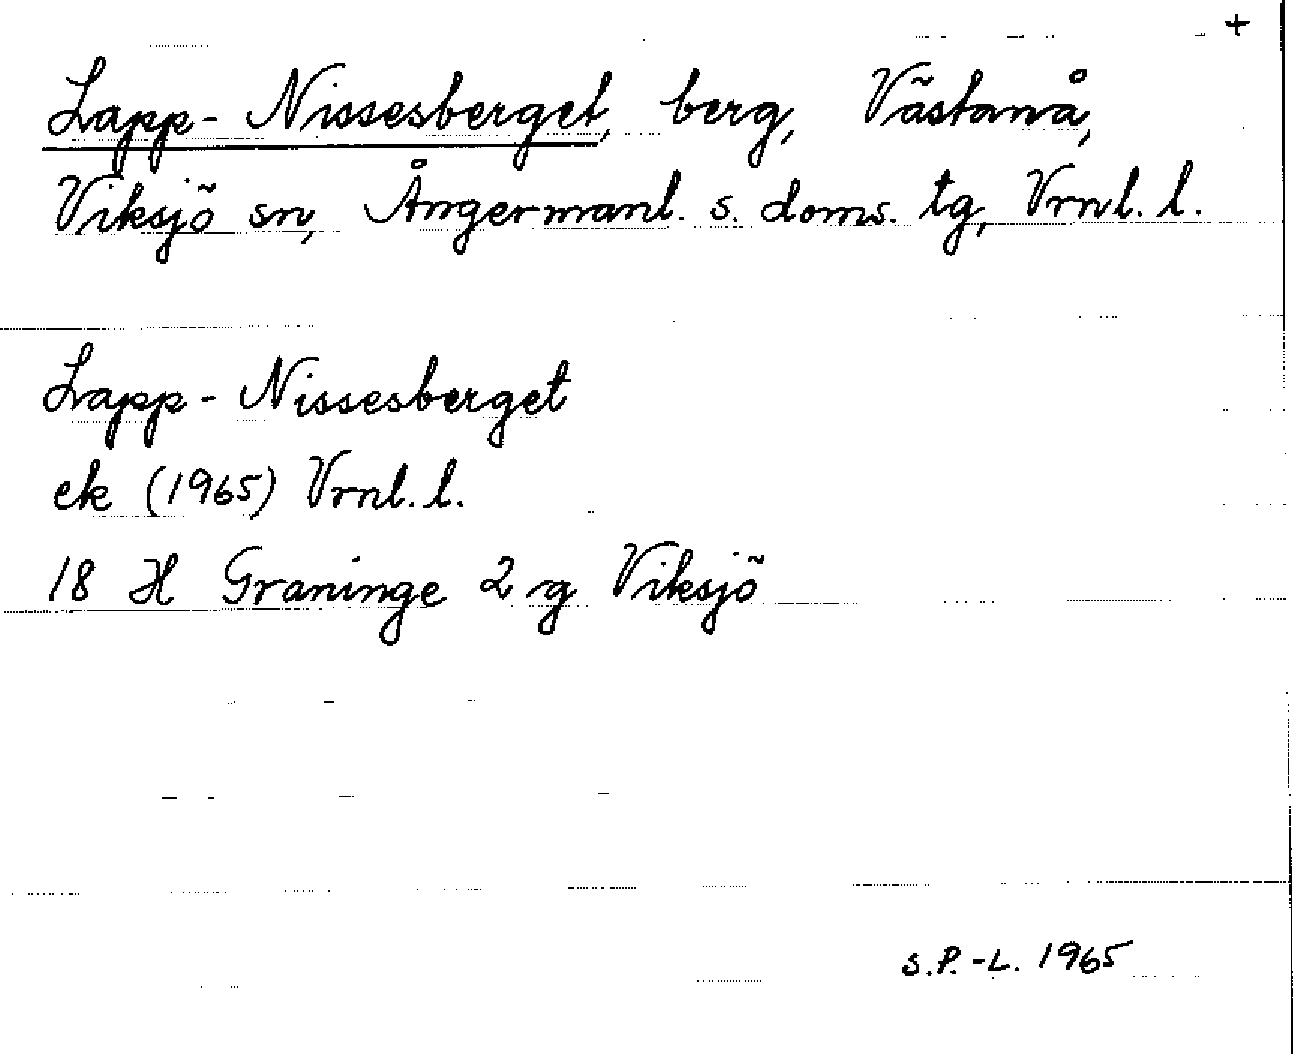 +
Lapp-Nissesberget, berg, Västanå,
Viksjö sn, Ångermanl. s. doms. tg, Vrnl. l.
Lapp-Nissesberget
ek (1965) Vrnl. l.
18 H Graninge 2 g Viksjö
S.P.-L. 1965